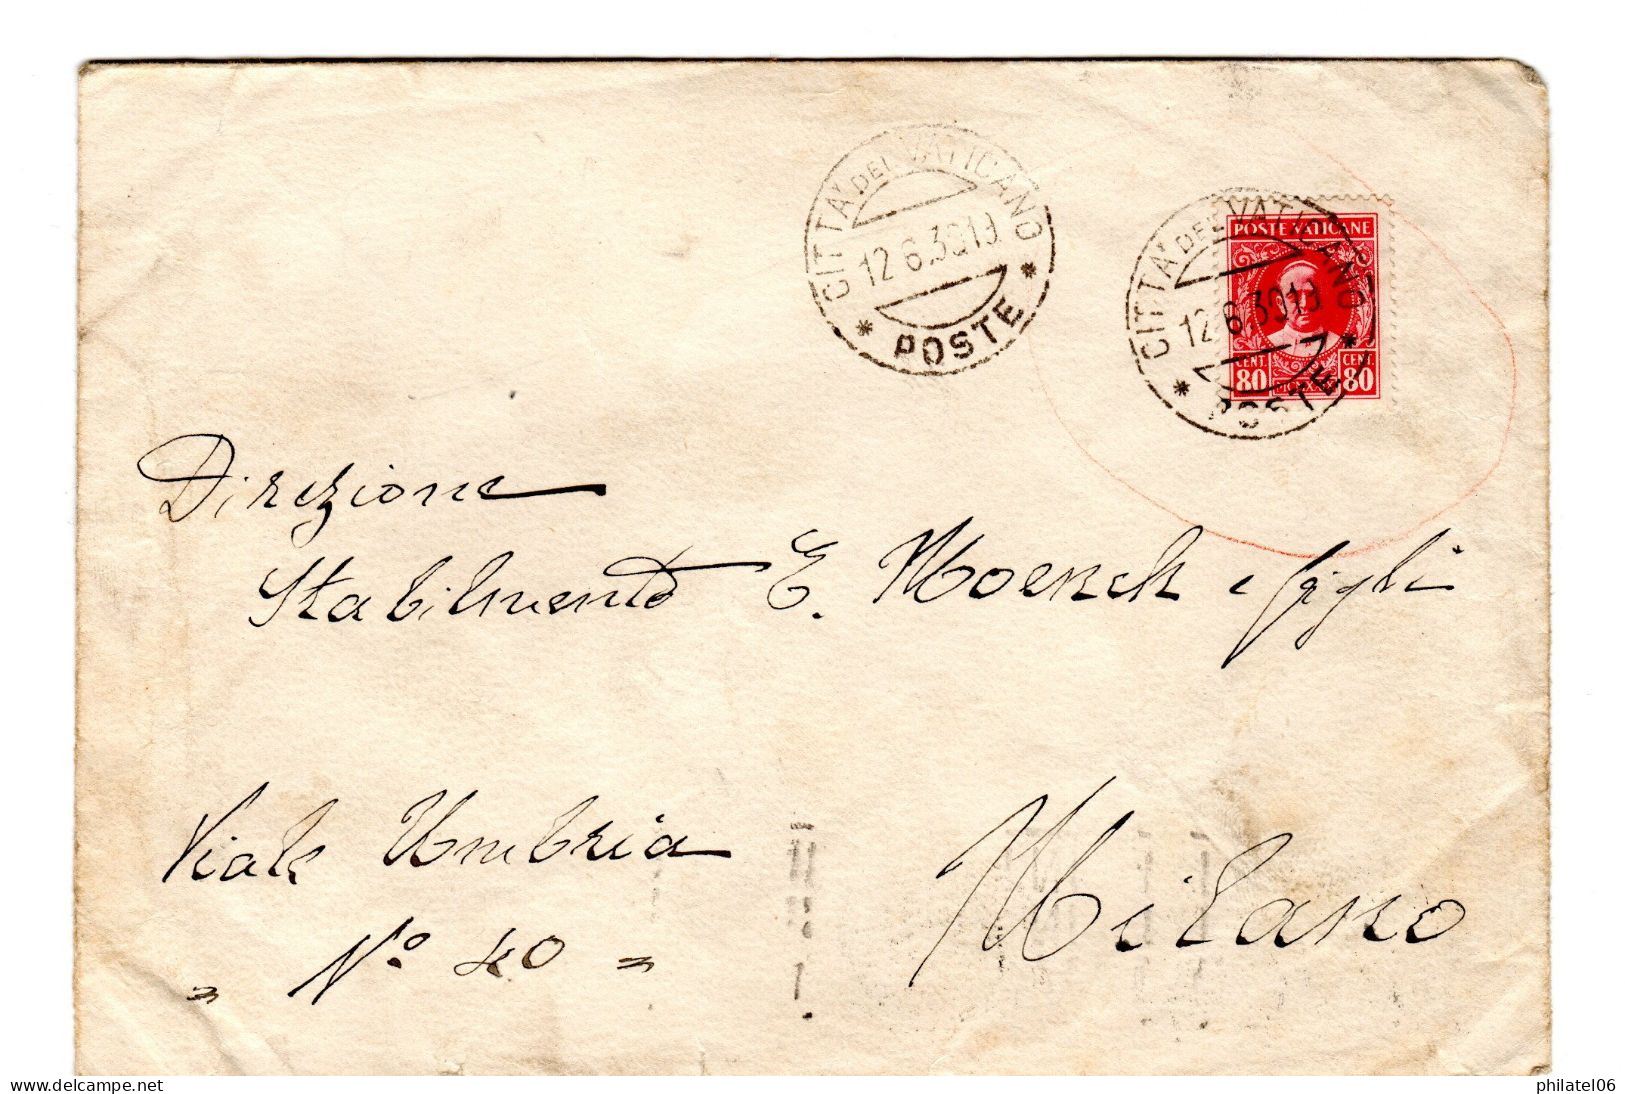 CITTA' DEL VATICANO
12.6.30.19
* POSTE *
CITTA' DEL VATICANO
12.6.30.19
* POSTE *
POSTE VATICANE
CENT. 80
CENT. 80
Direzione
Stabilimento E. Moench e figli
Viale Umbria
" No 40 =
Milano
delcampe.net
philatel06